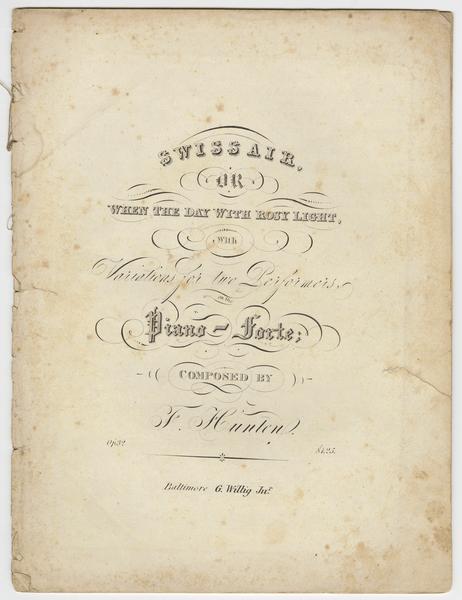 SWISS AIR,
OR
WHEN THE DAY WITH ROSY LIGHT,
With
Variations for two Performers
on the
Piano-Forte;
COMPOSED BY
F. Hunten.
Op.32 $1.25.
Baltimore G. Willig Junr